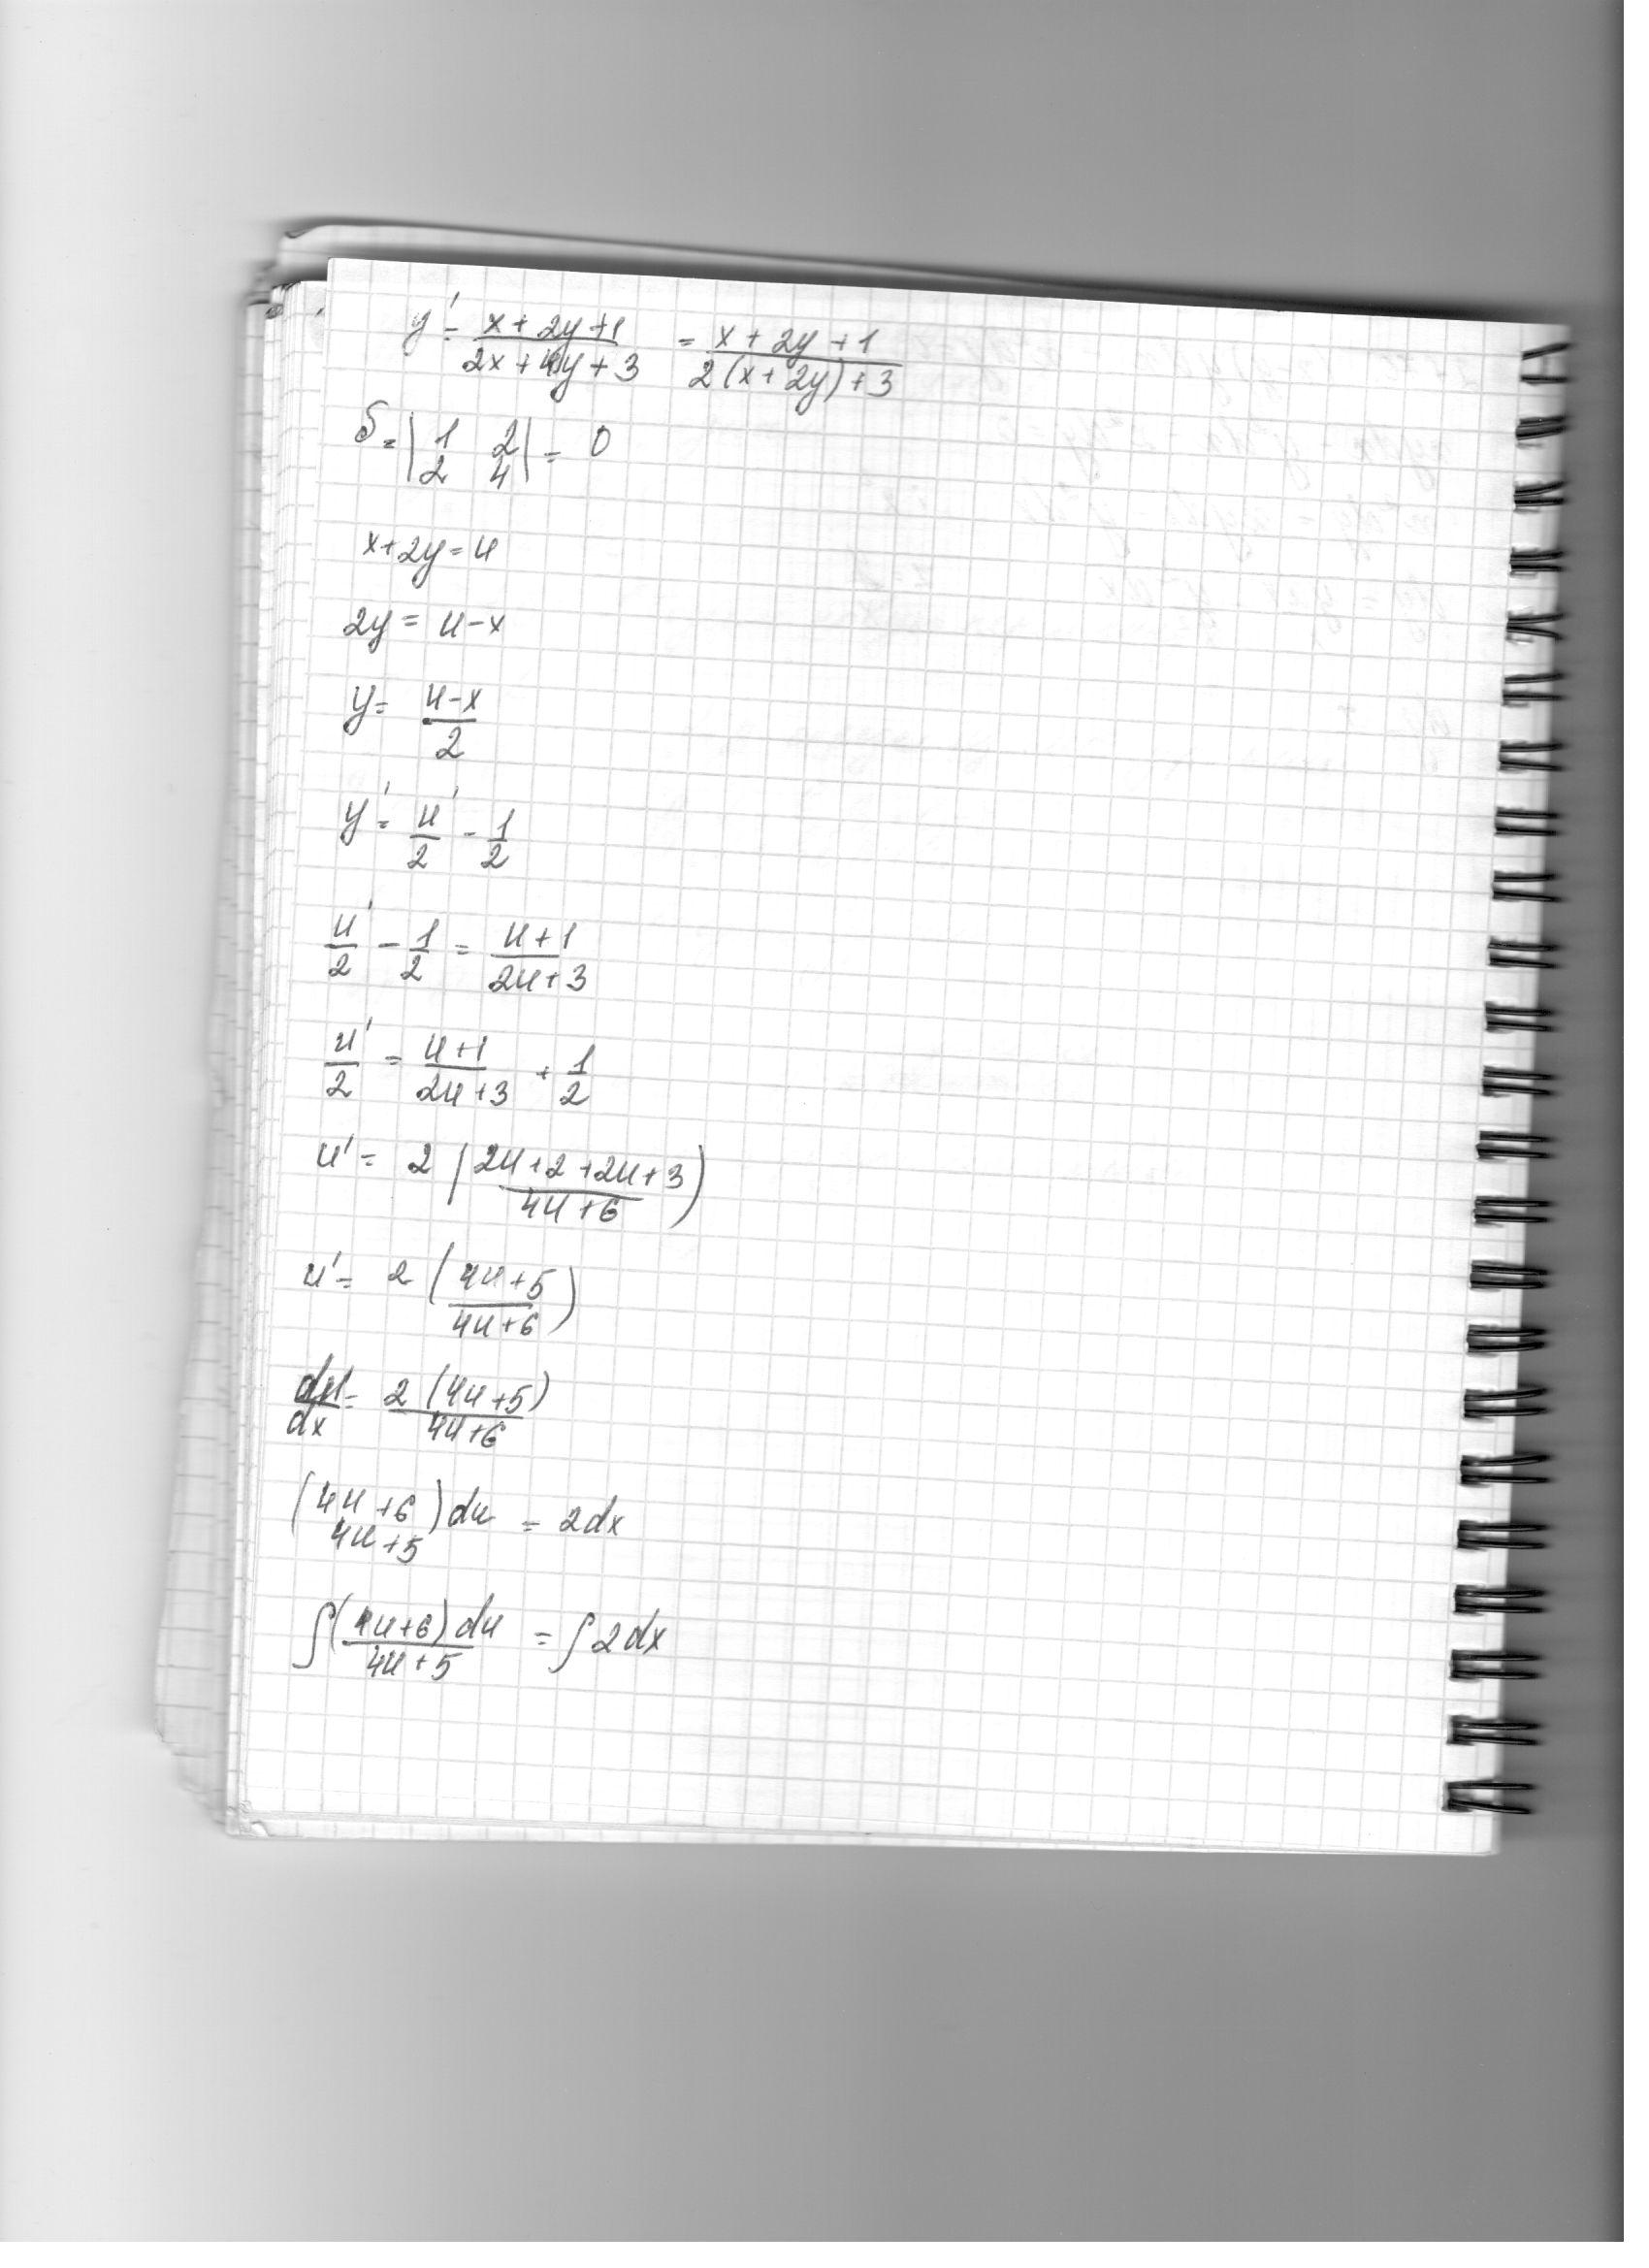 y' = (x + 2y + 1)/(2x + 4y + 3) = (x + 2y + 1)/(2(x + 2y) + 3)
δ = |1 2; 2 4| = 0
x + 2y = u
2y = u - x
y = (u - x)/2
y' = u'/2 - 1/2
u'/2 - 1/2 = (u + 1)/(2u + 3)
u'/2 = (u + 1)/(2u + 3) + 1/2
u' = 2((2u + 2 + 2u + 3)/(4u + 6))
u' = 2((4u + 5)/(4u + 6))
du/dx = 2(4u + 5)/(4u + 6)
((4u + 6)/(4u + 5)) du = 2dx
∫(4u + 6) du/(4u + 5) = ∫2dx